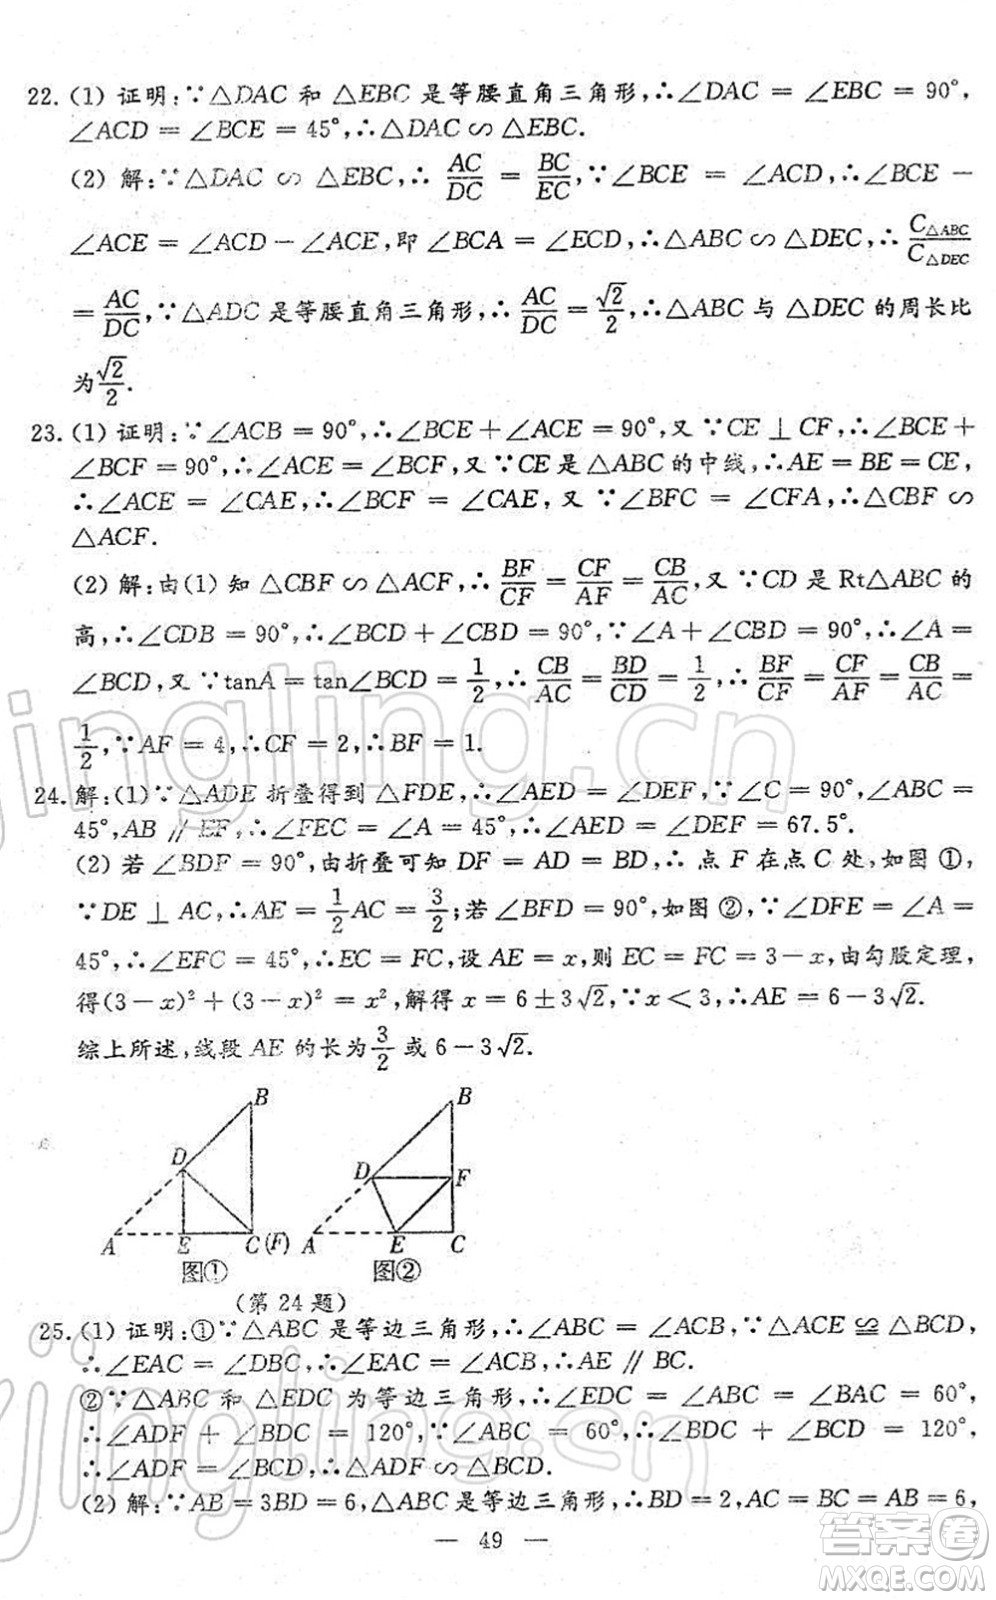 22. (1) 证明:∵△DAC 和 △EBC 是等腰直角三角形,∴∠DAC = ∠EBC = 90°,
∠ACD = ∠BCE = 45°,∴△DAC ∽ △EBC.
(2) 解:∵△DAC ∽ △EBC,∴ AC/DC = BC/EC,∵∠BCE = ∠ACD,∴∠BCE −
∠ACE = ∠ACD − ∠ACE,即 ∠BCA = ∠ECD,∴△ABC ∽ △DEC,∴ C△ABC/C△DEC
= AC/DC,∵△ADC 是等腰直角三角形,∴ AC/DC = √2/2,∴△ABC 与 △DEC 的周长比
为 √2/2.
23. (1) 证明:∵∠ACB = 90°,∴∠BCE + ∠ACE = 90°,又 ∵CE ⊥ CF,∴∠BCE +
∠BCF = 90°,∴∠ACE = ∠BCF,又 ∵CE 是△ABC 的中线,∴AE = BE = CE,
∴∠ACE = ∠CAE,∴∠BCF = ∠CAE,又 ∵∠BFC = ∠CFA,∴△CBF ∽
△ACF.
(2) 解:由(1) 知 △CBF ∽ △ACF,∴ BF/CF = CF/AF = CB/AC,又 ∵CD 是 Rt△ABC 的
高,∴∠CDB = 90°,∴∠BCD + ∠CBD = 90°,∵∠A + ∠CBD = 90°,∴∠A =
∠BCD,又 ∵tanA = tan∠BCD = 1/2,∴ CB/AC = BD/CD = 1/2,∴ BF/CF = CF/AF = CB/AC =
1/2,∵AF = 4,∴CF = 2,∴BF = 1.
24. 解:(1)∵△ADE 折叠得到 △FDE,∴∠AED = ∠DEF,∵∠C = 90°,∠ABC =
45°,AB ∥ EF,∴∠FEC = ∠A = 45°,∴∠AED = ∠DEF = 67.5°.
(2) 若 ∠BDF = 90°,由折叠可知 DF = AD = BD,∴ 点 F 在点 C 处,如图 ①,
∵DE ⊥ AC,∴AE = 1/2 AC = 3/2;若 ∠BFD = 90°,如图 ②,∵∠DFE = ∠A =
45°,∴∠EFC = 45°,∴EC = FC,设 AE = x,则 EC = FC = 3 − x,由勾股定理,
得(3 − x)² + (3 − x)² = x²,解得 x = 6 ± 3√2,∵x < 3,∴AE = 6 − 3√2.
综上所述,线段 AE 的长为 3/2 或 6 − 3√2.
B
D
A E C(F)
图①
B
D F
A E C
图②
(第 24 题)
25. (1) 证明:①∵△ABC 是等边三角形,∴∠ABC = ∠ACB,∵△ACE ≌ △BCD,
∴∠EAC = ∠DBC,∴∠EAC = ∠ACB,∴AE ∥ BC.
②∵△ABC 和 △EDC 为等边三角形,∴∠EDC = ∠ABC = ∠BAC = 60°,
∴∠ADF + ∠BDC = 120°,∵∠ABC = 60°,∴∠BDC + ∠BCD = 120°,
∴∠ADF = ∠BCD,∴△ADF ∽ △BCD.
(2) 解:∵AB = 3BD = 6,△ABC 是等边三角形,∴BD = 2,AC = BC = AB = 6,
— 49 —
答案卷
MXQE.COM
jyjingling.cn
jyjingling.cn